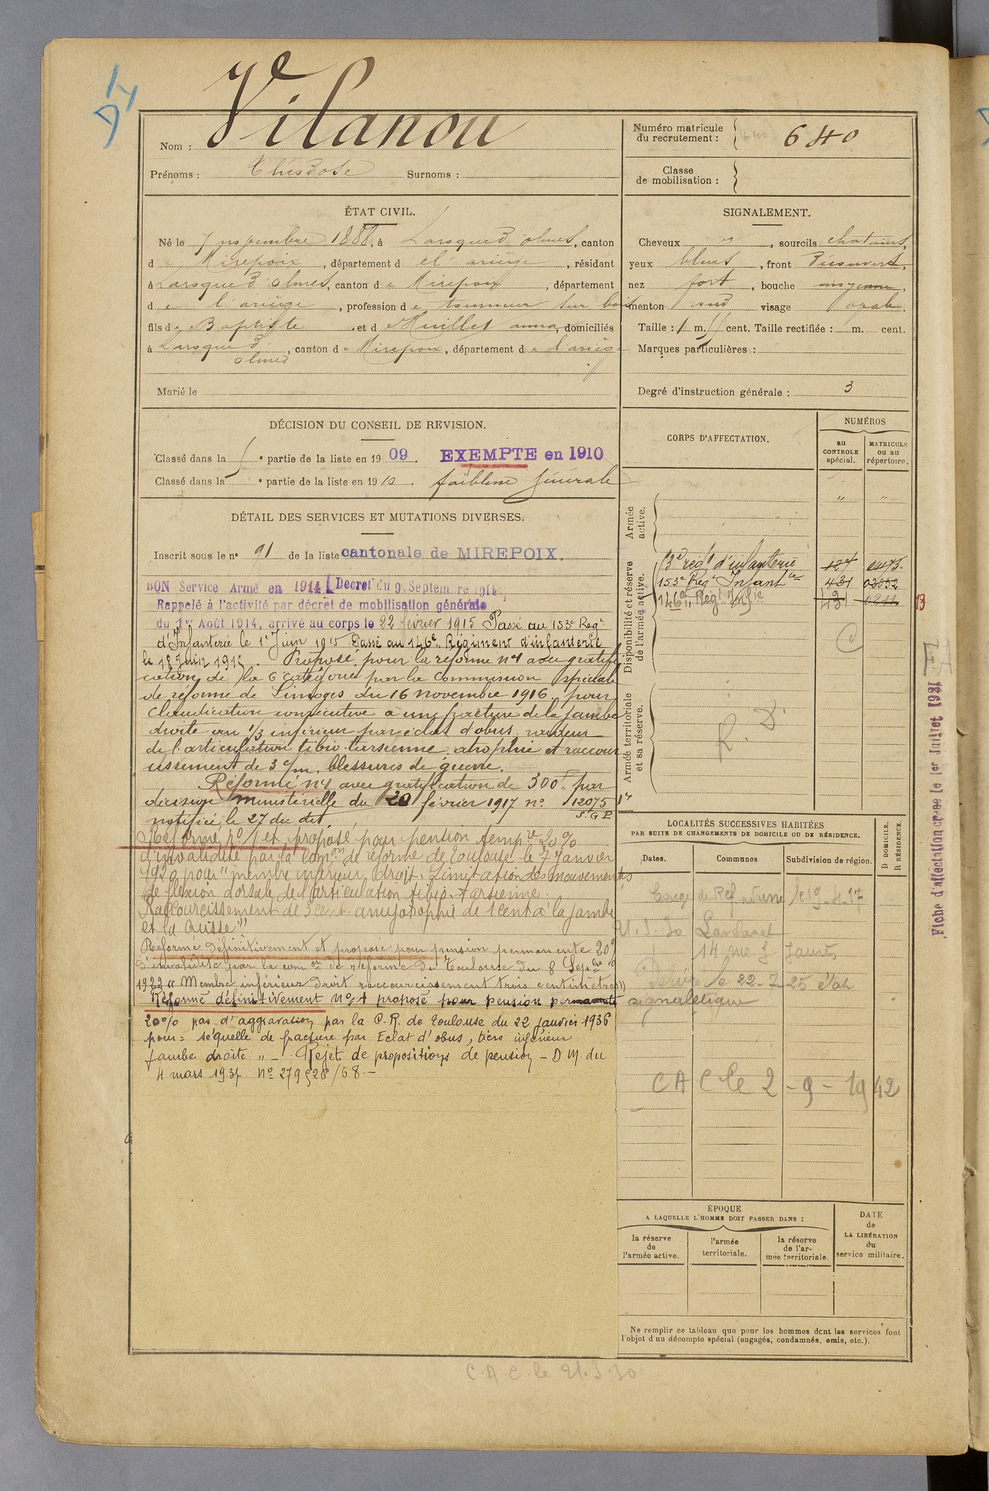 Nom : Vilanou
Prénoms : Théodose Surnoms :
Numéro matricule du recrutement : 640
Classe de mobilisation :
ÉTAT CIVIL.
Né le 7 novembre 1888, à Laroque d'olmes, canton
d e Mirepoix, département d e l'ariège, résidant
à Laroque d'olmes, canton d e Mirepoix, département
d e l'ariège, profession d e tourneur sur bois
fils d e Baptiste et d e Muillet anna, domiciliés
à Laroque d'olmes, canton d e Mirepoix, département d e l'ariège
Marié le
SIGNALEMENT.
Cheveux , sourcils chatains,
yeux bleus, front Découvert,
nez fort, bouche moyenne,
menton rond visage ovale
Taille : 1 m. cent. Taille rectifiée : m. cent.
Marques particulières :
Degré d'instruction générale : 3
DÉCISION DU CONSEIL DE REVISION.
Classé dans la partie de la liste en 1909. EXEMPTE en 1910
Classé dans la 5e partie de la liste en 1910. faiblesse générale
DÉTAIL DES SERVICES ET MUTATIONS DIVERSES.
Inscrit sous le n° 91 de la liste cantonale de MIREPOIX.
BON Service Armé en 1914 [Décret du 9 Septembre 1914]
Rappelé à l'activité par décret de mobilisation générale
du 1er Août 1914, arrivé au corps le 22 février 1915 Passé au 153e Regt
d'Infanterie le 1er Juin 1915 Passé au 146e Régiment d'infanterie
le 18 Juin 1915. Proposé pour la réforme n°1 avec gratifi
cation de la 6 catégorie par la Commission spéciale
de réforme de Limoges du 16 novembre 1916 pour
claudication consécutive à une fracture de la jambe
droite au 1/3 inférieur par éclat d'obus, raideur
de l'articulation tibio-tarsienne, atrophie et raccour
cissement de 3 c/m. blessures de guerre.
Réformé n°1 avec gratification de 300f par
décision ministérielle du 20 février 1917 n° 12075
S.G.P.
notifiée le 27 du dit
Réformé n° 1 et proposé pour pension tempre 20%
d'invalidité par la comon de réforme de Toulouse le 7 Janvier
1920 pour "membre inférieur droit. Limitation des mouvements
de flexion dorsale de l'articulation tibio-tarsienne.
Raccourcissement de 3 cent amyotrophie de 1 cent à la jambe
et la cuisse"
Réformé définitivement et proposé pour pension permanente 20%
d'invalidité par la comon de réforme de Toulouse du 8 Septbre
1922 "Membre inférieur droit raccourcissement trois centimètres"
Réformé définitivement N°1 proposé pour pension permanente
20% pas d'aggravation par la C.R. de Toulouse du 22 janvier 1936
pour : séquelle de fracture par Eclat d'obus, tiers inférieur
jambe droite " — Rejet de propositions de pension — D M du
4 mars 1937 N° 279528/68 —
CORPS D'AFFECTATION.
NUMÉROS
au CONTROLE spécial.
MATRICULE ou au répertoire.
Armée active.
" "
Disponibilité et réserve de l'armée active.
d'infanterie
153e Regt Infantie 431
146e Regt Infie 431
Armée territoriale et sa réserve.
R. D.
LOCALITÉS SUCCESSIVES HABITÉES
PAR SUITE DE CHANGEMENTS DE DOMICILE OU DE RÉSIDENCE.
Dates. Communes Subdivision de région.
D DOMICILE. R RÉSIDENCE.
14 rue J Jaurès
le 22-7-25 état
signalétique
CA C le 2-9-1942
ÉPOQUE
A LAQUELLE L'HOMME DOIT PASSER DANS :
la réserve de l'armée active.
l'armée territoriale.
la réserve de l'armée territoriale.
DATE de LA LIBÉRATION du service militaire.
Ne remplir ce tableau que pour les hommes dont les services font
l'objet d'un décompte spécial (engagés, condamnés, omis, etc.).
Fiche d'affectation créée le 1er Juillet 1931
C.A.C. le 21.3.30